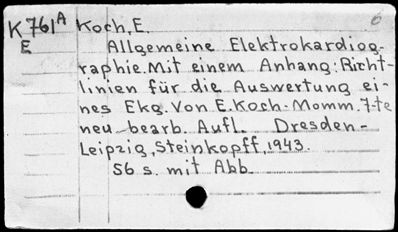 K 761 A Koch, E. 6
E Allgemeine Elektrokardiog-
raphie. Mit einem Anhang: Richt-
linien für die Auswertung ei-
nes Ekg. Von E. Koch-Momm. 7-te
neu bearb. Aufl. Dresden-
Leipzig, Steinkopff, 1943.
56 s. mit Abb.